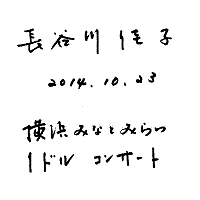 長谷川佳子
2014.10.23
横浜みなとみらい
1ドル コンサート